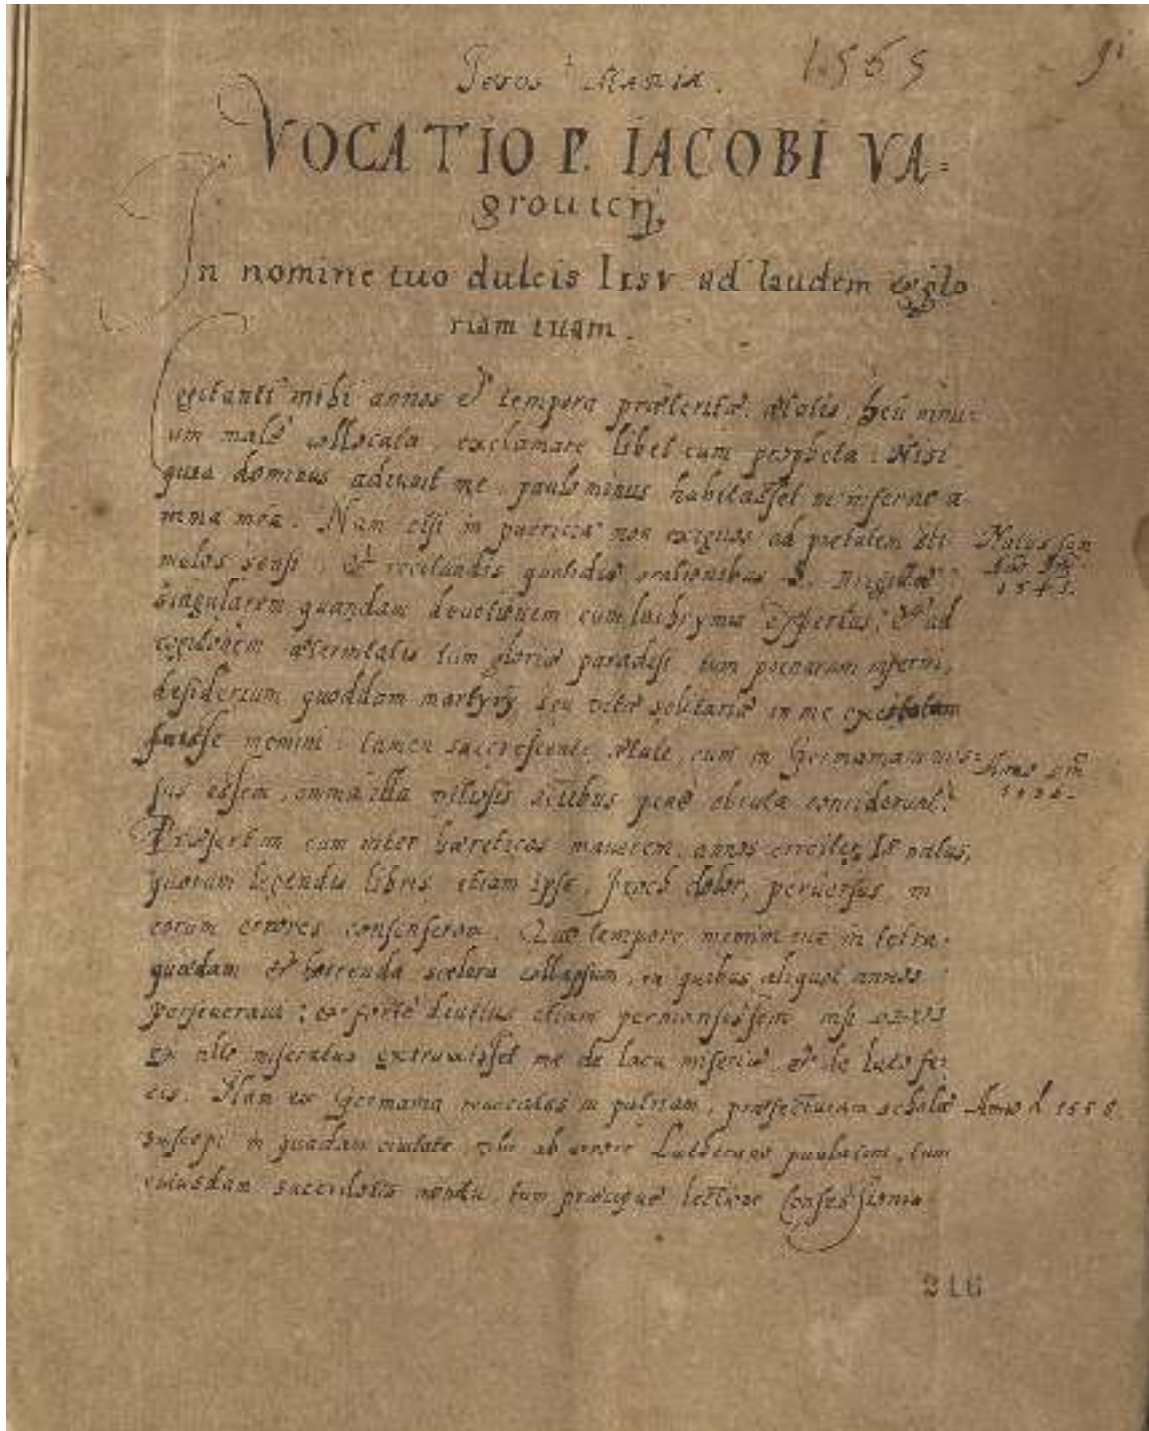 Iesus † Maria.
1565
91
VOCATIO P. IACOBI VA=
grouicij,
In nomine tuo dulcis Iesv ad laudem et glo
riam tuam.
Cogitanti mihi annos et tempora præteritæ ætatis, heu nimi=
um malè collocata, exclamare libet cum propheta: Nisi
quia dominus adiuvit me, paulo minus habitasset in inferno a=
nima mea. Nam etsi in pueritia non exiguos ad pietatem sti
mulos sensi, et recitandis quotidie orationibus B. Virginis
singularem quandam devotionem cum lachrymis expertus: et ad
cogitationem æternitatis tùm gloriæ paradisi, tum pœnarum inferni,
desiderium quoddam martyrij, seu vitæ solitariæ in me excitatum
fuisse memini: tamen succrescente ætate, cum in Germaniam mis=
sus essem, omnia illa vitiosis sentibus penè obruta conciderunt:
Præsertim cum inter hæreticos manerem, annos circiter 15 natus,
quorum legendis libris etiam ipse, proch dolor, perversus, in
eorum errores consenseram. Quo tempore memini me in tetra
quædam et horrenda scelera collapsum, in quibus aliquot annos
perseveraui; et fortè diutius etiam permansissem nisi
ex alto miseratus extraxisset me de lacu miseriæ, et de luto fe=
cis. Nam ex Germania revocatus in patriam, præfecturam scholæ
suscepi in quadam civitate, vbi ab errore Lutherano paulatim, tum
cuiusdam sacerdotis, tum præcipuè lectione Confessionis
Natus sum
1541.
Anno
Anno d 1558.
216